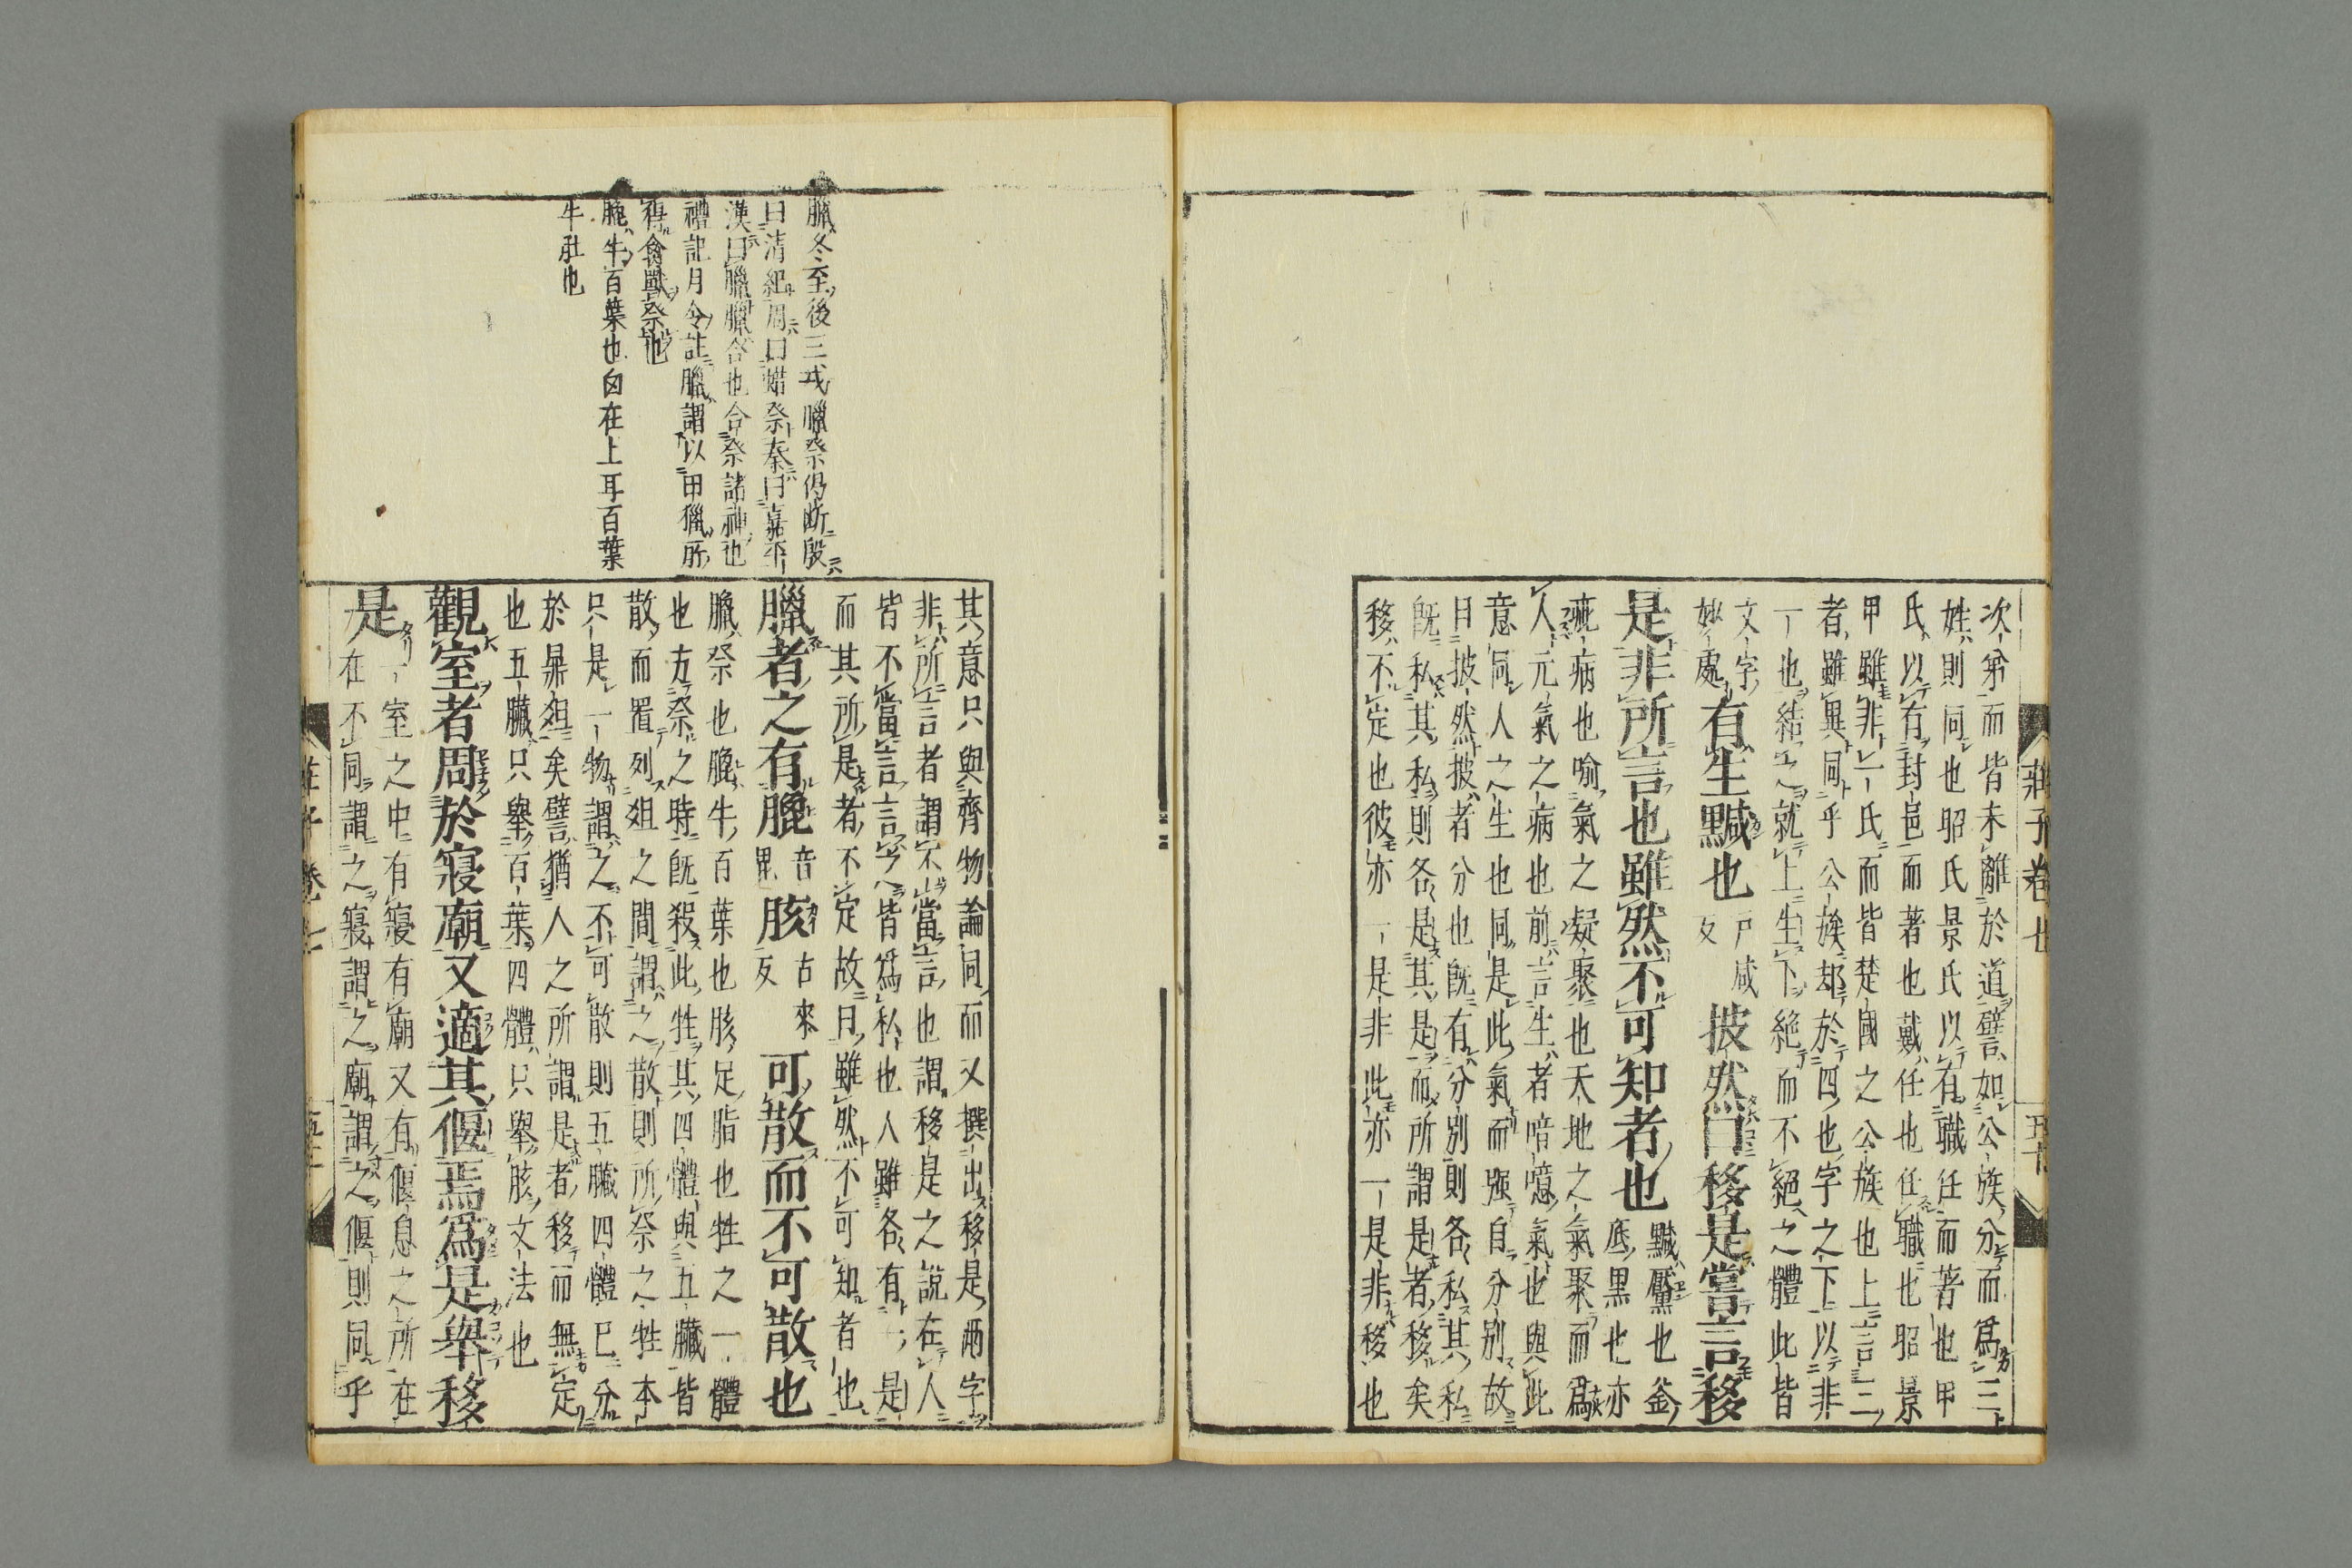 莊子卷七
五十
次第而皆未離於道譬如公族分而爲三
姓則同也昭氏景氏以有職任而著也甲
氏以有封邑而著也戴任也任職也昭景
甲雖非一氏而皆楚國之公族也上言二
者雖異同乎公族却於四也字之下以非
一也結之就上生下絶而不絕之體此皆
文字
妙處有生黬也
戸咸
反
披然曰移是嘗言移
是非所言也雖然不可知者也
黬黶也釜
底黑也亦
疵病也喻氣之凝聚也天地之氣聚而爲
人元氣之病也前言生者喑噫氣也與此
意同人之生也同是此氣而强自分別故
曰披然披者分也既有分別則各私其私
既私其私則各是其是而所謂是者移矣
移不定也彼亦一是非此亦一是非移也
臘冬至後三戌臘祭
殷
曰清祀周曰蜡祭秦曰嘉平
漢曰臘臘合也合祭諸神也
禮記月令註臘謂以田獵所
得禽獸祭也
膍牛百葉也 在上耳百葉
牛肚也
其意只與齊物論同而又撰出移是兩字
非所言者謂不當言也謂移是之說在人
皆不當言言今皆爲私也人雖各有一是
而其所是者不定故曰雖然不可知者也
臘者之有膍
音
毘
胲
古來
反
可散而不可散也
臘祭也膍牛百葉也胲足脂也牲之一體
也方祭之時既殺此牲其四體與五臟皆
散而置列俎之間謂之散則所祭之牲本
只是一物謂之不可散則五臟四體已分
於鼎俎矣譬猶人之所謂是者移而無定
也五臟只舉百葉四體只舉胲文法也
觀室者周於寢廟又適其偃焉爲是舉移
是
一室之中有寢有廟又有偃息之所在
在不同謂之寢謂之廟謂之偃則同乎